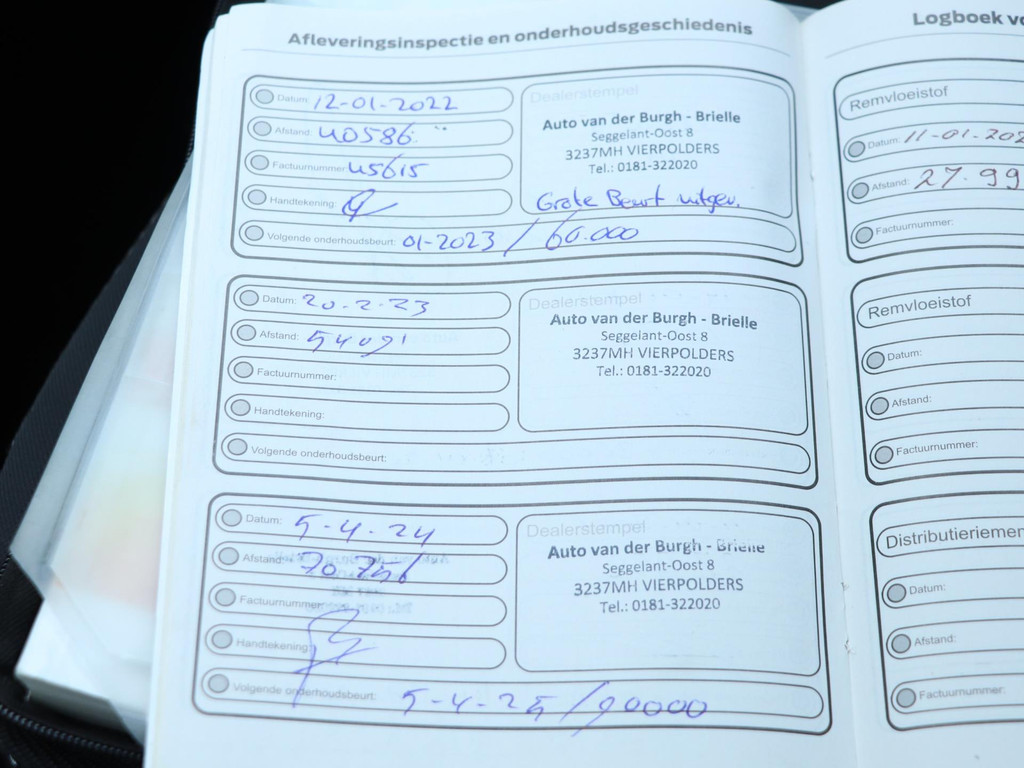 Afleveringsinspectie en onderhoudsgeschiedenis
Datum: 12-01-2022
Afstand: 40586
Factuurnummer: 45615
Handtekening:
Volgende onderhoudsbeurt: 01-2023 / 60.000
Dealerstempel
Auto van der Burgh - Brielle
Seggelant-Oost 8
3237MH VIERPOLDERS
Tel.: 0181-322020
Grote Beurt uitgev.
Datum: 20-2-23
Afstand: 54091
Factuurnummer:
Handtekening:
Volgende onderhoudsbeurt:
Dealerstempel
Auto van der Burgh - Brielle
Seggelant-Oost 8
3237MH VIERPOLDERS
Tel.: 0181-322020
Datum: 5-4-24
Afstand:
Factuurnummer:
Handtekening:
Volgende onderhoudsbeurt: 5-4-25 / 90000
Dealerstempel
Auto van der Burgh - Brielle
Seggelant-Oost 8
3237MH VIERPOLDERS
Tel.: 0181-322020
Logboek
Remvloeistof
Datum: 11-01-202
Afstand: 27.99
Factuurnummer:
Remvloeistof
Datum:
Afstand:
Factuurnummer:
Distributieriemen
Datum:
Afstand:
Factuurnummer: